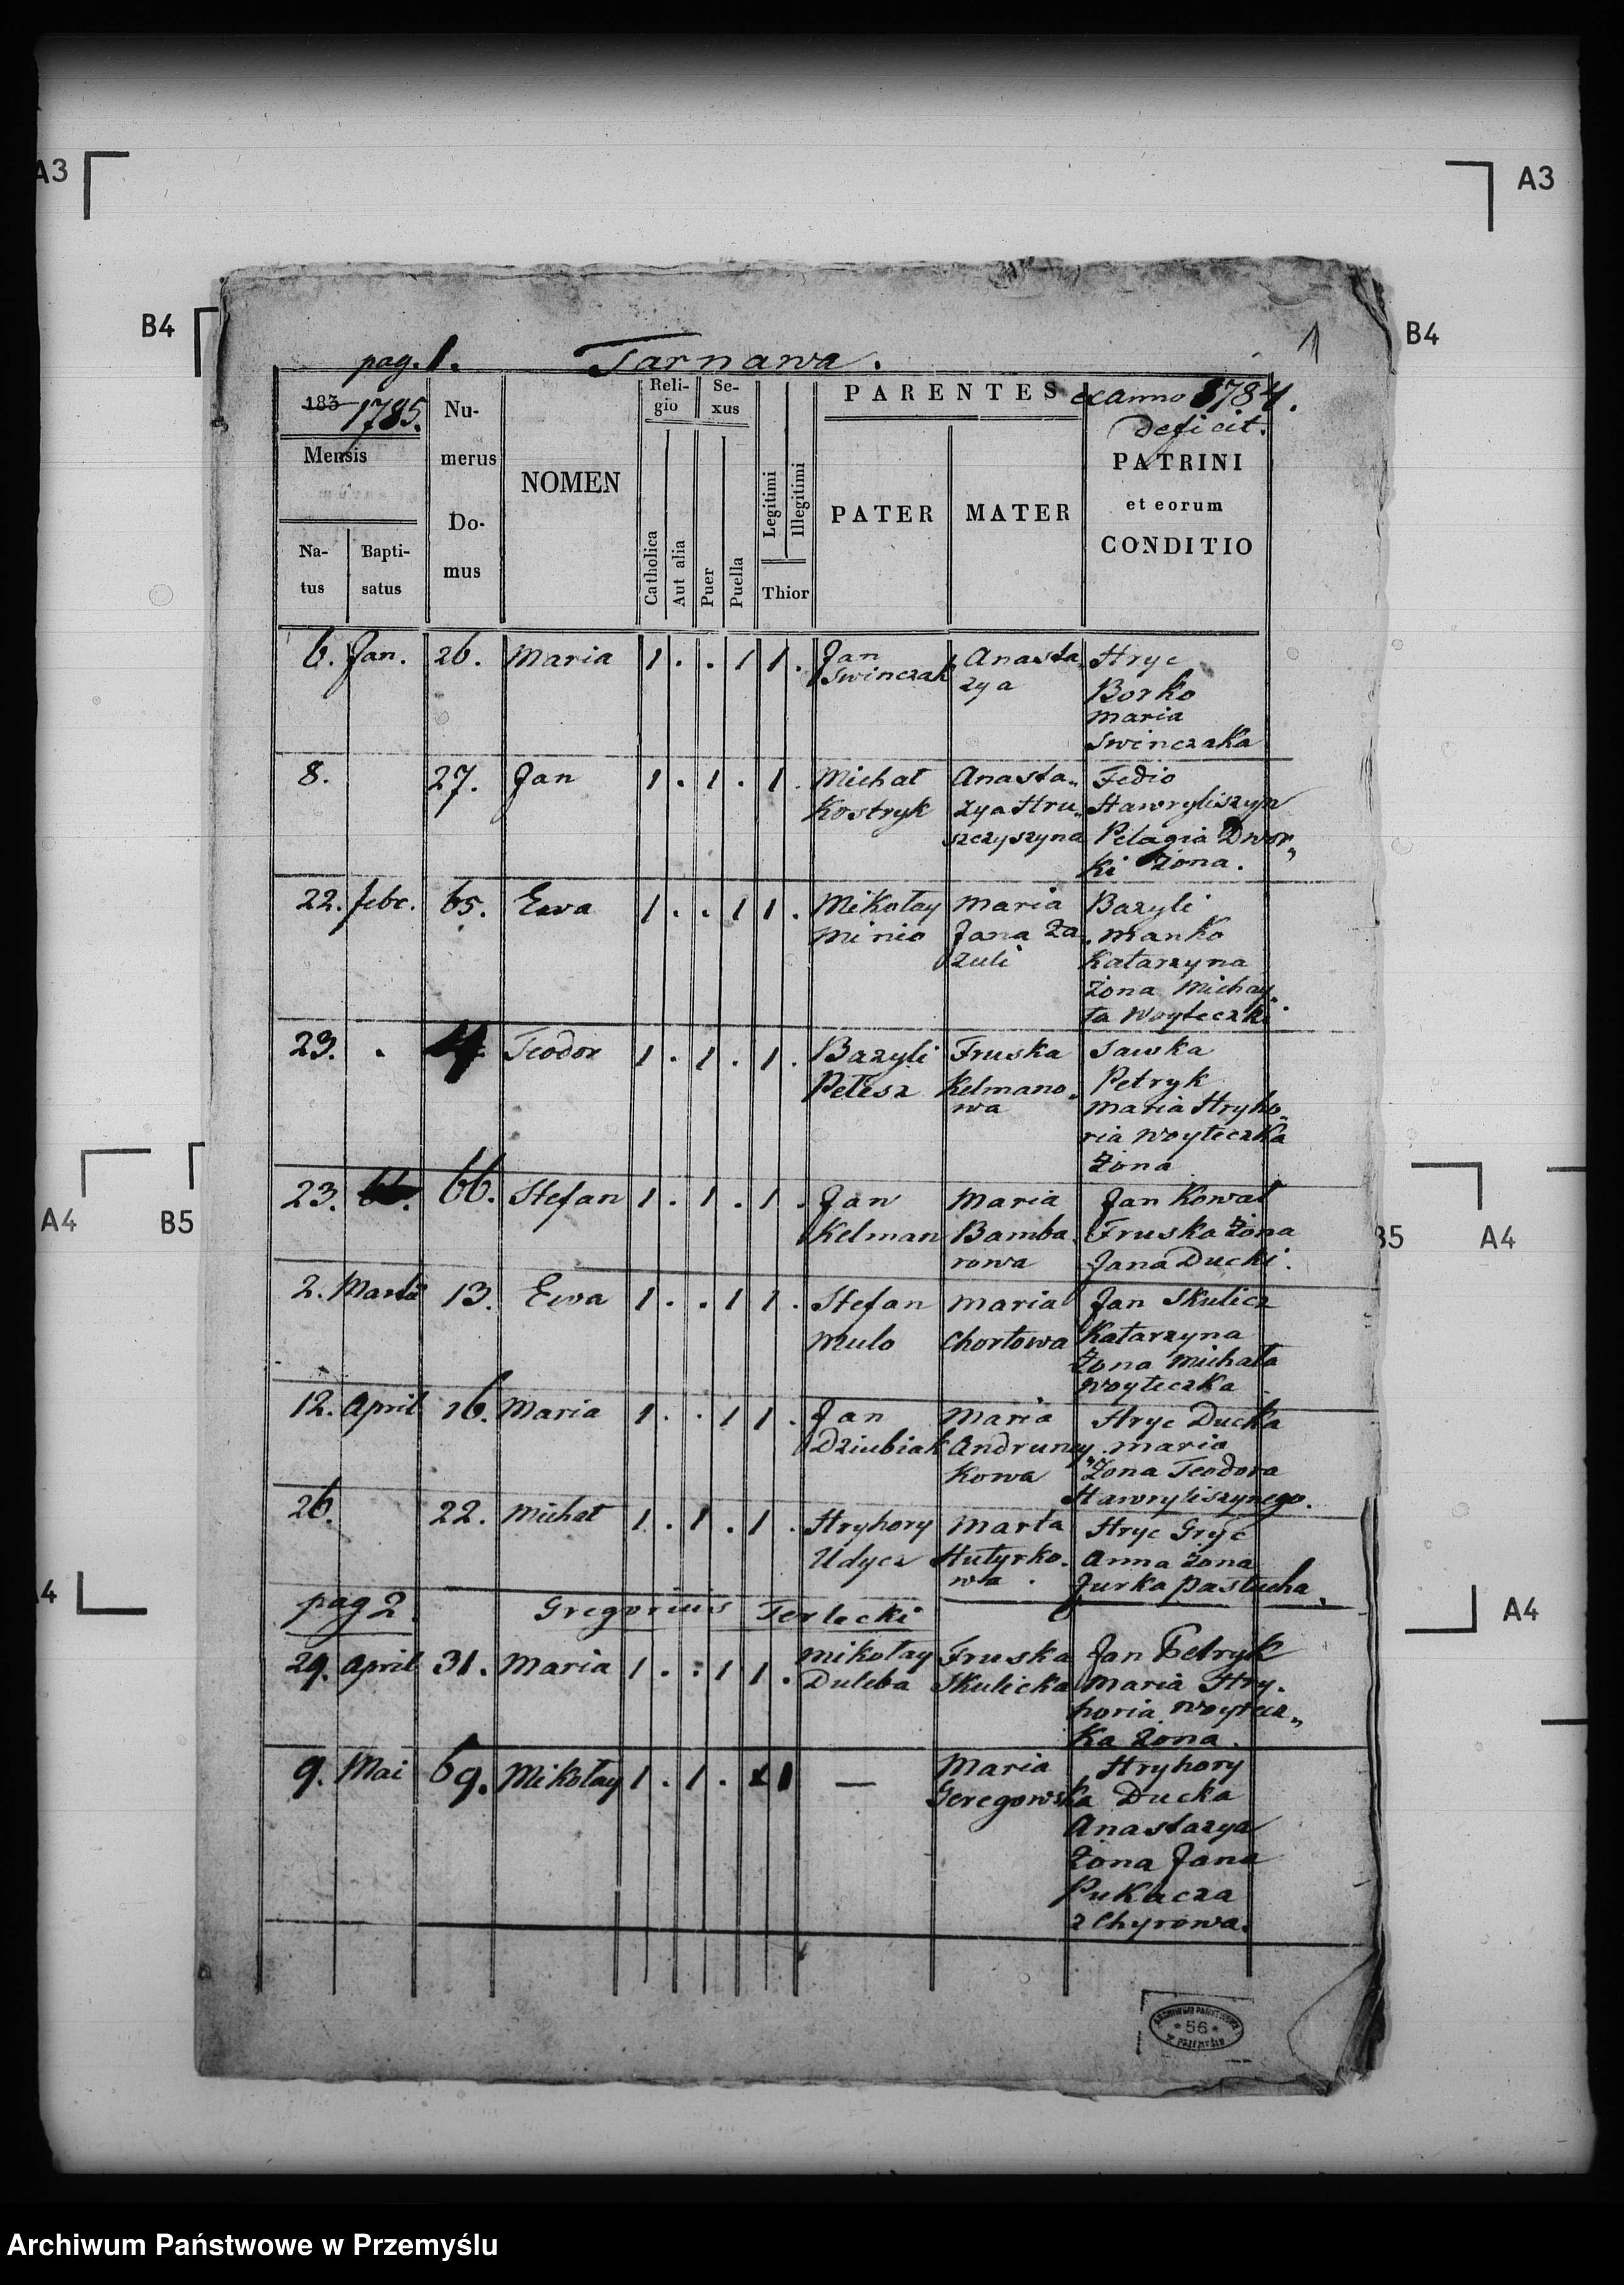 A3 A3
B4 B4
1
pag. 1. Tarnawa.
183 1785. Nu- merus Do- mus NOMEN Reli- gio Se- xus PARENTES ex anno 1784.
deficit.
Mensis Catholica Aut alia Puer Puella Legitimi Illegitimi Thior PATER MATER PATRINI
et eorum
CONDITIO
Na- tus Bapti- satus
6. Jan. 26. Maria 1 . . 1 1 . Jan Anasta Hryc
Swinczak zya Borko
Maria
Swinczaka
8. 27. Jan 1 . 1 . 1 . Michał Anasta„ Fedio
Kostryk zya Hru„ Hawryliszyn
szczyszyna Pelagia Dwor„
ki Żona.
22. febr. 65. Ewa 1 . . 1 1 . Mikołay Maria Bazyli
Minio Jana Za. Manko
zuli Katarzyna
Żona Michay
ła Woyteczki
23. . 4. Teodor 1 . 1 . 1 . Bazyli Fruska Sawka
Pełesz Kelmano„ Petryk
wa Maria Hryho„
ria Woyteczka
Żona
23. 66. Stefan 1 . 1 . 1 . Jan Maria Jan Kowal
Kelman Bamba. Fruska Żona
rowa Jana Ducki.
2. Martii 13. Ewa 1 . . 1 1 . Stefan Maria Jan Skulicz
Mulo Chortowa Katarzyna
Żona Michała
Woyteczka
12. April 16. Maria 1 . . 1 1 . Jan Maria Hryc Ducka
Dziubiak Andruney Maria
kowa Żona Teodora
Hawryliszynego.
26. 22. Michał 1 . 1 . 1 . Hryhory Marta Hryc Gryc
Udycz Hutyrko. Anna Żona
wa . Jurka Pastucha.
pag 2. Gregorius Terlecki
29. April 31. Maria 1 . . 1 1 . Mikołay Fruska Jan Petryk
Duleba Skulicka Maria Hry.
horia Woytecz„
ka Żona.
9. Mai 69. Mikołay 1 . 1 . 1 — Maria Hryhory
Geregowska Ducka
Anastazya
Żona Jana
Pukacza
z Chyrowa.
A4 B5 B5 A4
A4 A4
ARCHIWUM PAŃSTWOWE
* 56 *
W PRZEMYŚLU
Archiwum Państwowe w Przemyślu